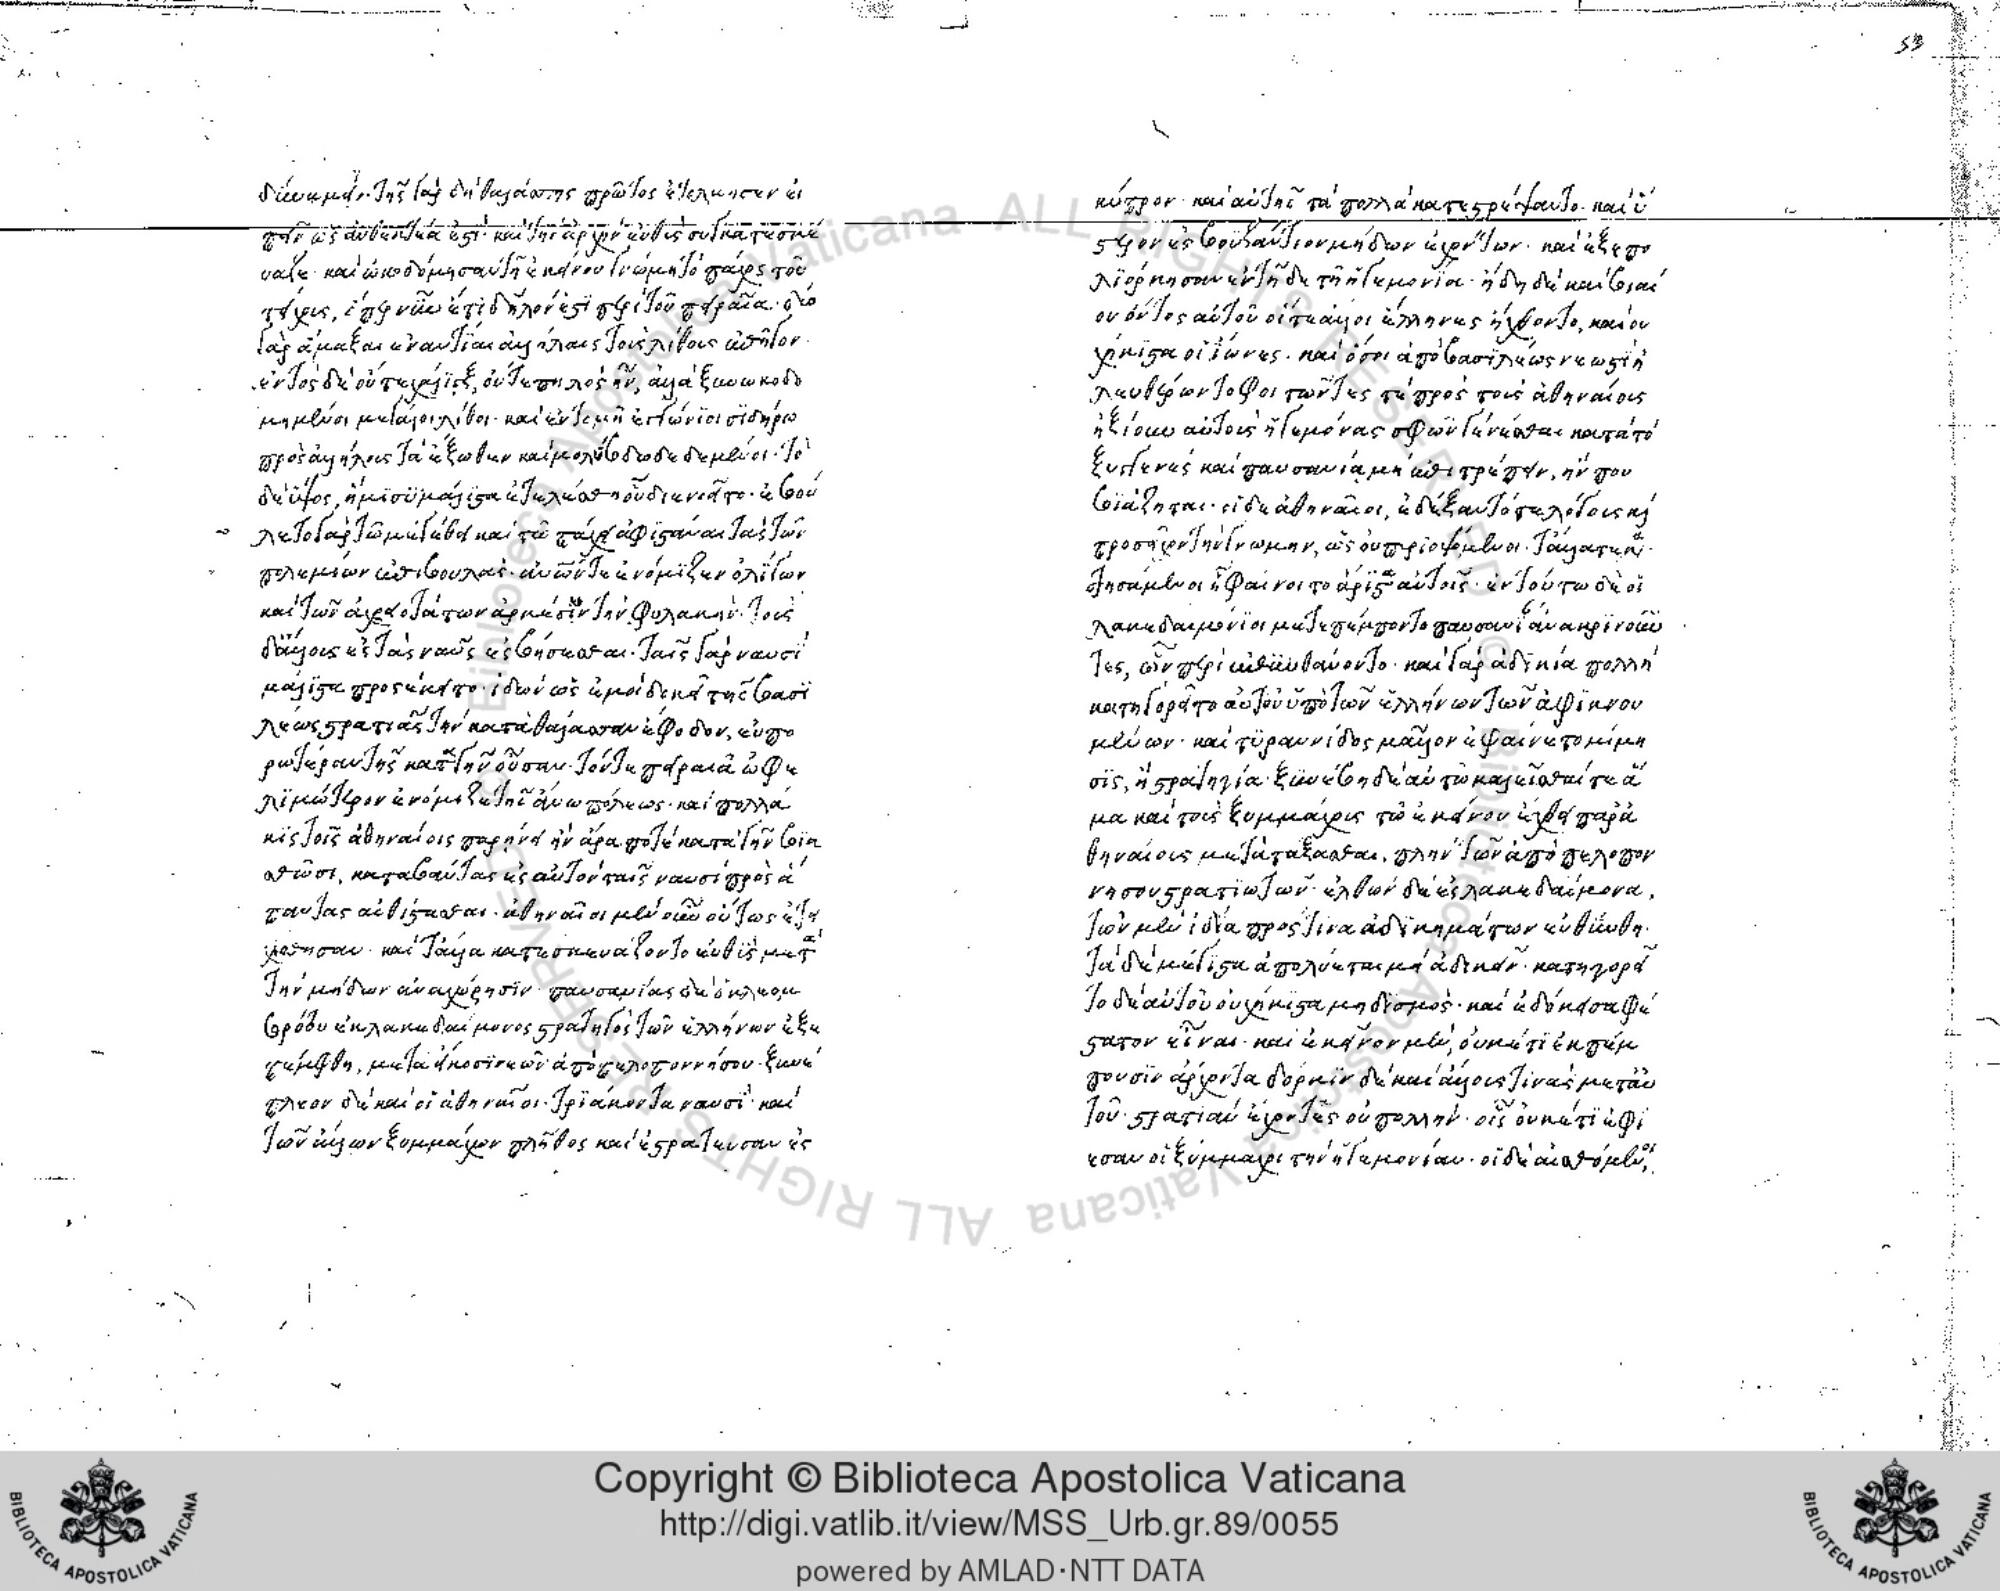 53
δύναμιν· τῆς γὰρ δὴ θαλάσσης πρῶτος ἐτόλμησεν εἰ
πεῖν ὡς ἀνθεκτέα ἐστί· καὶ τὴν ἀρχὴν εὐθὺς συγκατεσκεύ
αζε· καὶ ὠκοδόμησαν τῆ ἐκείνου γνώμη τὸ πάχος τοῦ
τείχους, ὅπερ νῦν ἔτι δῆλόν ἐστι περὶ τὸν πειραῖα· δύο
γὰρ ἅμαξαι ἐναντίαι ἀλλήλαις τοὺς λίθους ἐπῆγον·
ἐντὸς δὲ οὔτε χάλιξ, οὔτε πηλὸς ἦν, ἀλλὰ ξυνωκοδο
μημένοι μεγάλοι λίθοι· καὶ ἐντομῆ ἐγγώνιοι σιδήρω
πρὸς ἀλλήλους τὰ ἔξωθεν καὶ μολύβδω δεδεμένοι· τὸ
δὲ ὕψος, ἥμισυ μάλιστα ἐτελέσθη οὗ διενοεῖτο· ἐβού
λετο γὰρ τῶ μεγέθει καὶ τῶ πάχει ἀφιστάναι τὰς τῶν
πολεμίων ἐπιβουλάς· ἀνθρώπων τε ἐνόμιζεν ὀλίγων
καὶ τῶν ἀχρειοτάτων ἀρκέσειν τὴν φυλακήν· τοὺς
δ' ἄλλους ἐς τὰς ναῦς ἐσβήσεσθαι· ταῖς γὰρ ναυσὶ
μάλιστα προσέκειτο· ἰδὼν ὡς ἐμοὶ δοκεῖ τῆς βασι
λέως στρατιᾶς τὴν κατὰ θάλασσαν ἔφοδον, εὐπο
ρωτέραν τῆς κατὰ γῆν οὖσαν· τόν τε πειραιᾶ ὠφε
λιμώτερον ἐνόμιζε τῆς ἄνω πόλεως· καὶ πολλά
κις τοῖς ἀθηναίοις παρήνει ἢν ἄρα ποτὲ κατὰ γῆν βια
σθῶσι, καταβάντας ἐς αὐτὸν ταῖς ναυσὶ πρὸς ἅ
παντας ἀνθίστασθαι· ἀθηναῖοι μὲν οὖν οὕτως ἐτει
χίσθησαν· καὶ τἄλλα κατεσκευάζοντο εὐθὺς μετὰ
τὴν μήδων ἀναχώρησιν· παυσανίας δὲ ὁ κλεομ
βρότου ἐκ λακεδαίμονος στρατηγὸς τῶν ἑλλήνων ἐξε
πέμφθη, μετὰ εἴκοσι νεῶν ἀπὸ πελοποννήσου· ξυνέ
πλεον δὲ καὶ οἱ ἀθηναῖοι· τριάκοντα ναυσὶ· καὶ
τῶν ἄλλων ξυμμάχων πλῆθος καὶ ἐστράτευσαν ἐς
κύπρον· καὶ αὐτῆς τὰ πολλὰ κατεστρέψαντο· καὶ ὕ
στερον ἐς βυζάντιον μήδων ἐχόντων· καὶ ἐξεπο
λιόρκησαν ἐν τῆδε τῆ ἡγεμονία· ἤδη δὲ καὶ βιαί
ου ὄντος αὐτοῦ οἵ τε ἄλλοι ἕλληνες ἤχθοντο, καὶ οὐ
χ ἥκιστα οἱ ἴωνες· καὶ ὅσοι ἀπὸ βασιλέως νεωστὶ ἠ
λευθέρωντο φοιτῶντές τε πρὸς τοὺς ἀθηναίους
ἠξίουν αὐτοὺς ἡγεμόνας σφῶν γενέσθαι κατὰ τὸ
ξυγγενὲς καὶ παυσανία μὴ ἐπιτρέπειν, ἤν που
βιάζηται· οἱ δὲ ἀθηναῖοι, ἐδέξαντό τε λόγους καὶ
προσεῖχον τὴν γνώμην, ὡς οὐ περιοψόμενοι· τἄλλά τε κατα
στησόμενοι ἧ φαίνοιτο ἄριστα αὐτοῖς· ἐν τούτω δὲ οἱ
λακεδαιμόνιοι μετεπέμποντο παυσανίαν ἀνακρινοῦν
τες, ὧν πέρι ἐπυνθάνοντο· καὶ γὰρ ἀδικία πολλὴ
κατηγορεῖτο αὐτοῦ ὑπὸ τῶν ἑλλήνων τῶν ἀφικνου
μένων· καὶ τυραννίδος μᾶλλον ἐφαίνετο μίμη
σις, ἢ στρατηγία· ξυνέβη δὲ αὐτῶ καλεῖσθαί τε ἅ
μα καὶ τοὺς ξυμμάχους τῶ ἐκείνου ἔχθει παρ' ἀ
θηναίους μετατάξασθαι, πλὴν τῶν ἀπὸ πελοπον
νήσου στρατιωτῶν· ἐλθὼν δὲ ἐς λακεδαίμονα,
τῶν μὲν ἰδία πρός τινα ἀδικημάτων εὐθύνθη·
τὰ δὲ μέγιστα ἀπολύεται μὴ ἀδικεῖν· κατηγορεῖ
το δὲ αὐτοῦ οὐχ ἥκιστα μηδισμός· καὶ ἐδόκει σαφέ
στατον εἶναι· καὶ ἐκεῖνον μὲν, οὐκέτι ἐκπέμ
πουσιν ἄρχοντα δόρκιν δὲ καὶ ἄλλους τινὰς μετ' αὐ
τοῦ· στρατιὰν ἔχοντας οὐ πολλήν· οἷς οὐκέτι ἐφί
εσαν οἱ ξύμμαχοι τὴν ἡγεμονίαν· οἱ δὲ αἰσθόμενοι,
Copyright © Biblioteca Apostolica Vaticana
http://digi.vatlib.it/view/MSS_Urb.gr.89/0055
powered by AMLAD·NTT DATA